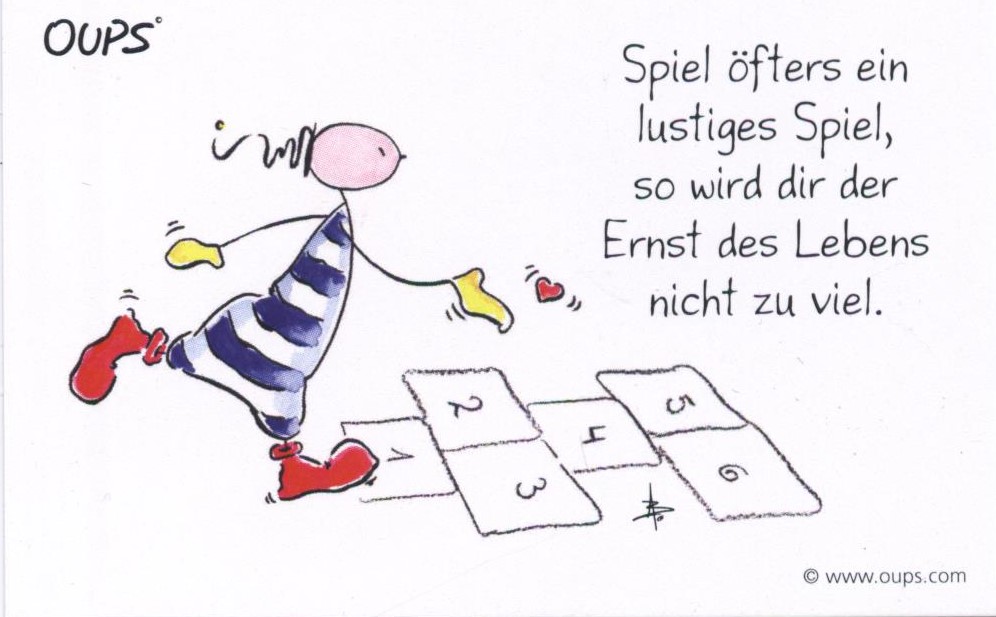 OUPS
Spiel öfters ein
lustiges Spiel,
so wird dir der
Ernst des Lebens
nicht zu viel.
1
2
3
4
5
6
© www.oups.com